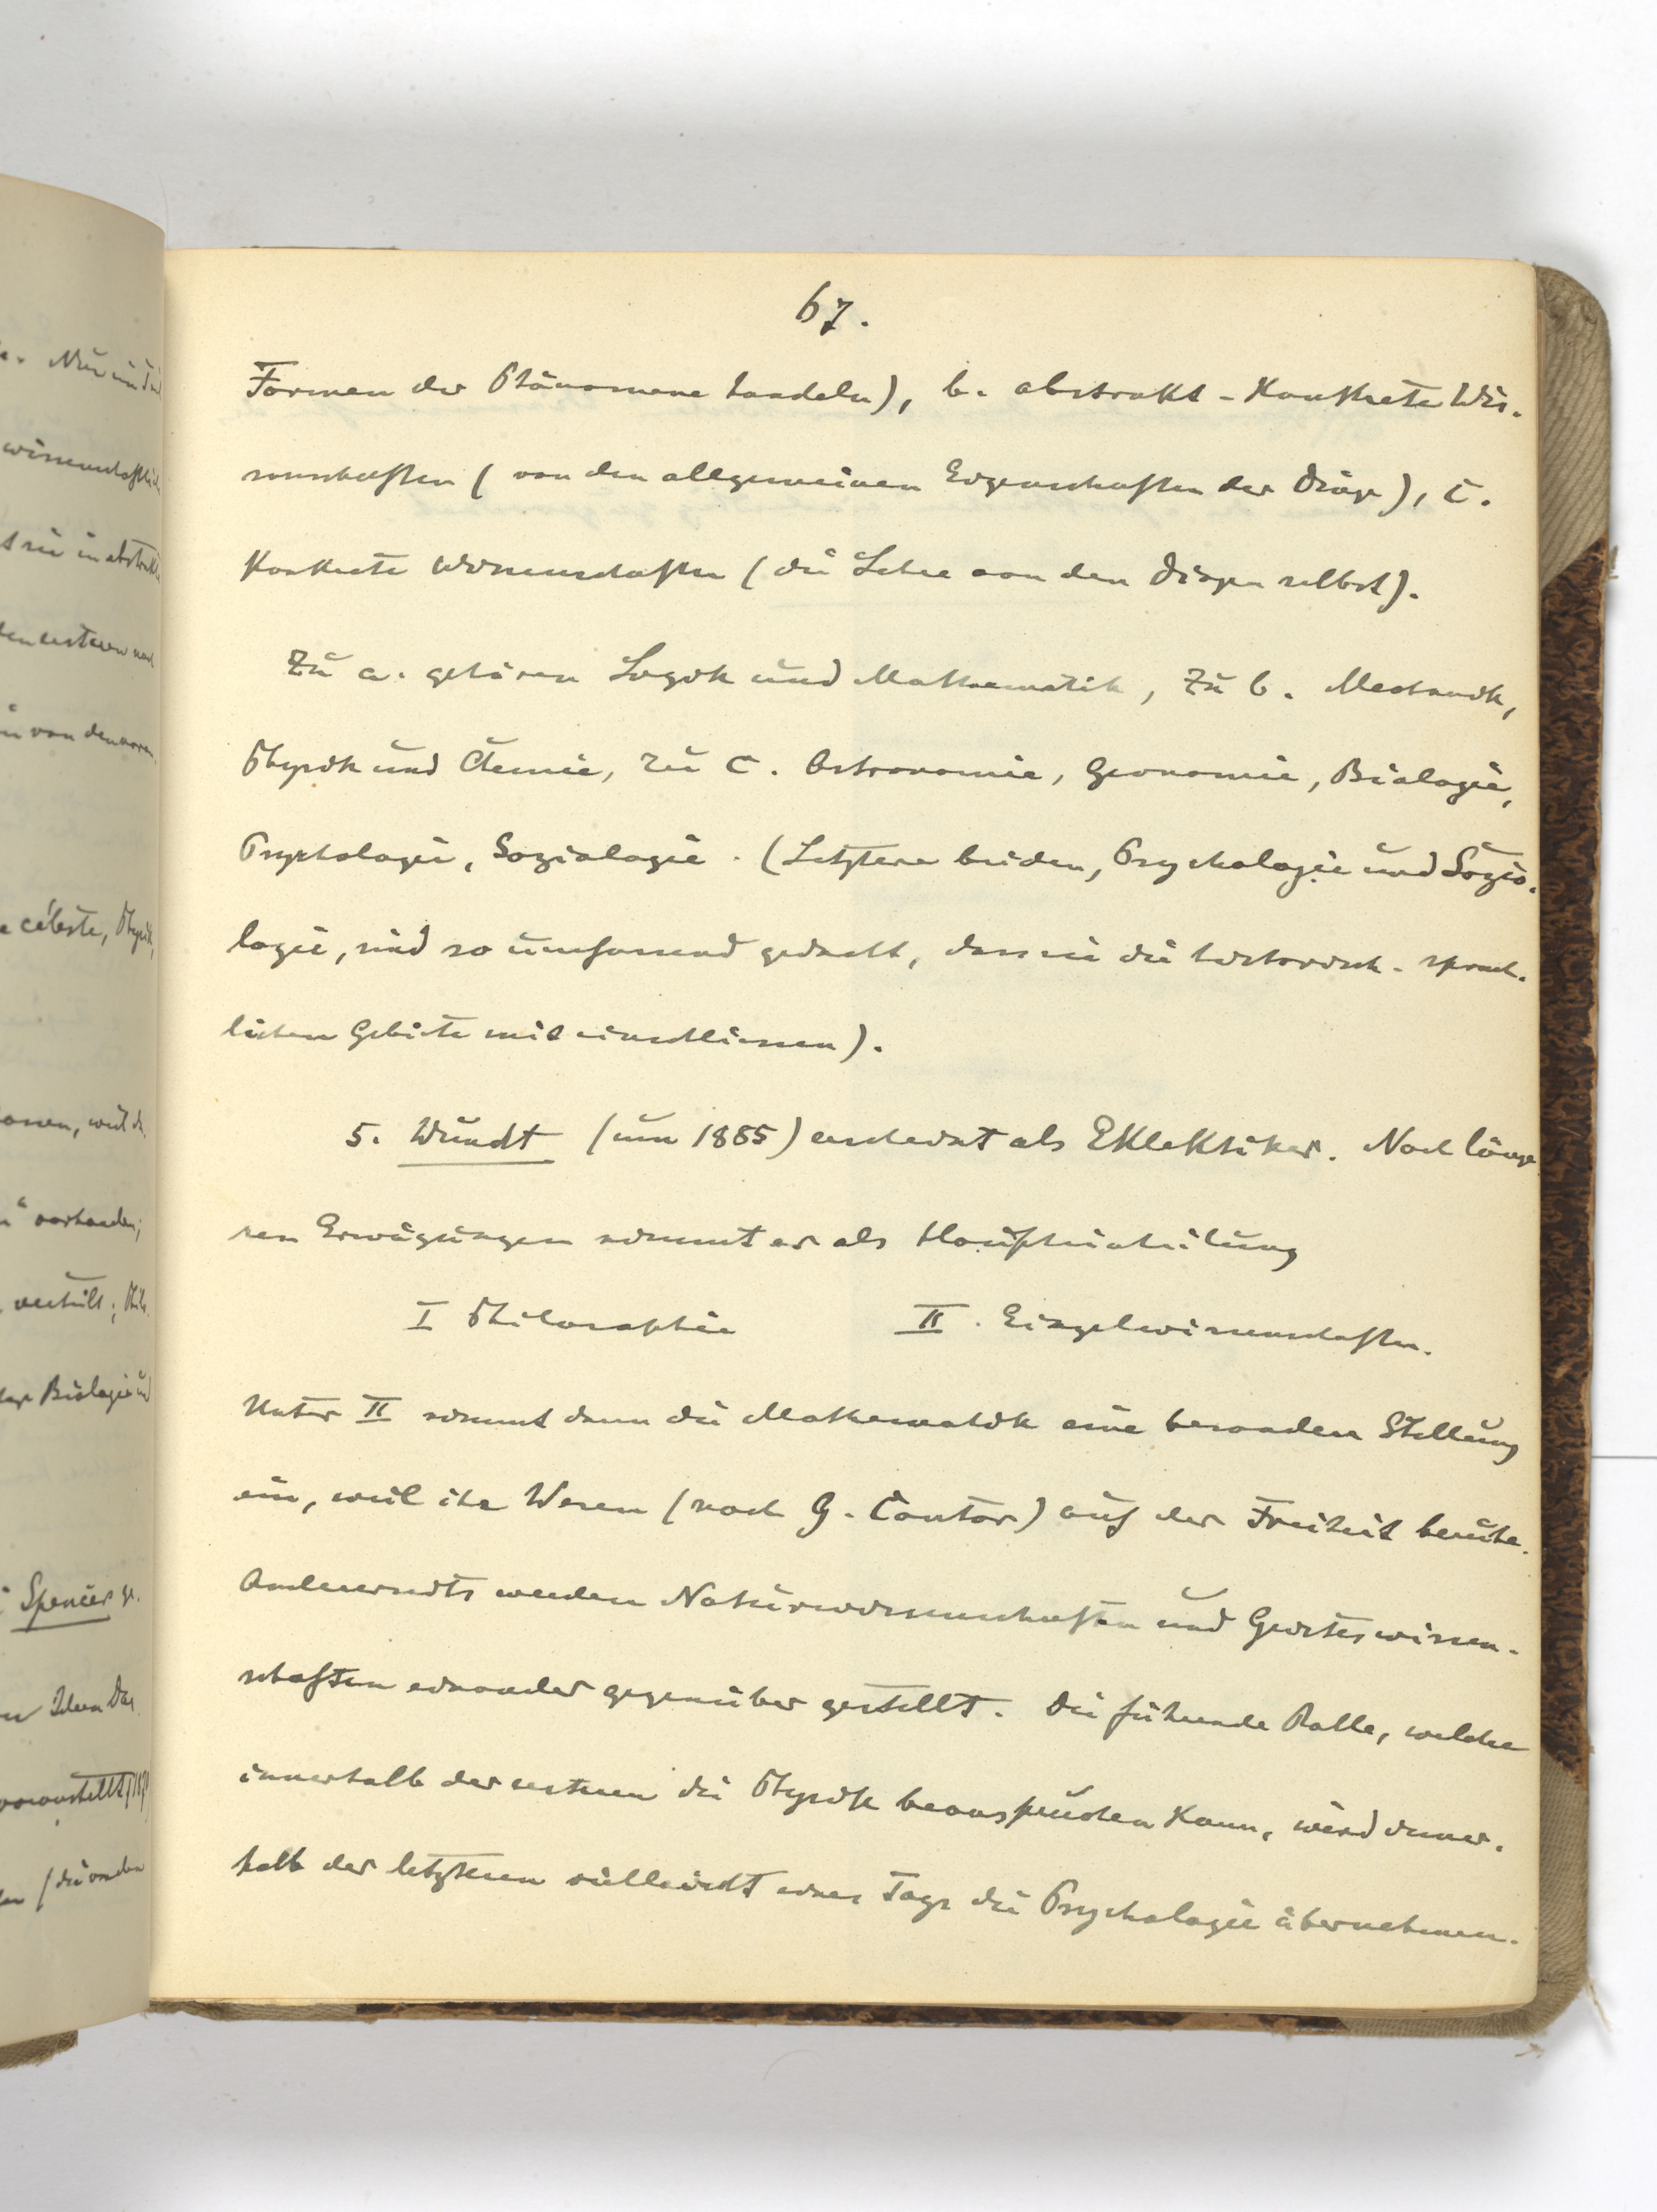 67.
Formen der Phänomene handeln), b. abstrakt-konkrete Wis-
senschaften (von den allgemeinen Eigenschaften der Dinge), c.
konkrete Wissenschaften (die Lehre von den Dingen selbst).
Zu a. gehören Logik und Mathematik, zu b. Mechanik,
Physik und Chemie, zu c. Astronomie, Geonomie, Biologie,
Psychologie, Soziologie. (Letztere beiden, Psychologie und Sozio-
logie, sind so umfassend gedacht, dass sie die historisch-sprach-
lichen Gebiete mit einschliessen).
5. Wundt (um 1885) erscheint als Eklektiker. Nach länge
ren Erwägungen nimmt er als Haupteinteilung
I Philosophie II. Einzelwissenschaften.
Unter II nimmt dann die Mathematik eine besondere Stellung
ein, weil ihr Wesen (nach G. Cantor) auf der Freiheit beruhe.
Andererseits werden Naturwissenschaften und Geisteswissen-
schaften einander gegenüber gestellt. Die führende Rolle, welche
innerhalb der ersteren die Physik beanspruchen kann, wird inner-
halb der letzteren vielleicht eines Tags die Psychologie übernehmen.